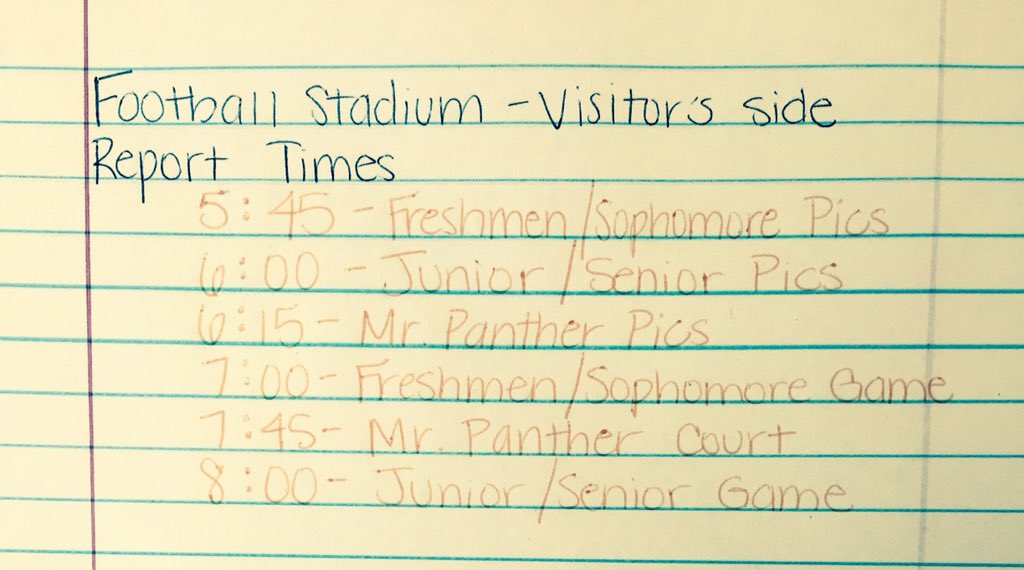 Football Stadium - Visitor's side
Report Times
5:45 - Freshmen/Sophomore Pics
6:00 - Junior/Senior Pics
6:15 - Mr. Panther Pics
7:00 - Freshmen/Sophomore Game
7:45 - Mr. Panther Court
8:00 - Junior/Senior Game